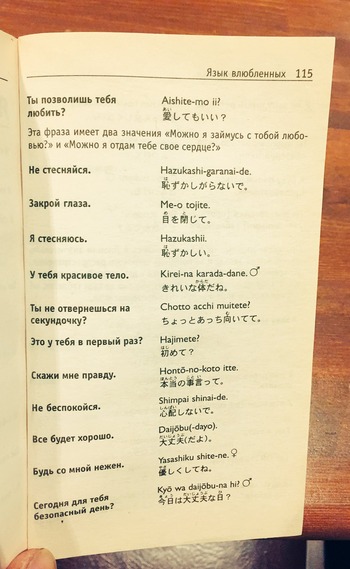 Язык влюбленных 115
Ты позволишь тебя Aishite-mo ii?
любить? 愛してもいい？
Эта фраза имеет два значения «Можно я займусь с тобой любо-
вью?» и «Можно я отдам тебе свое сердце?»
Не стесняйся. Hazukashi-garanai-de.
恥ずかしがらないで。
Закрой глаза. Me-o tojite.
目を閉じて。
Я стесняюсь. Hazukashii.
恥ずかしい。
У тебя красивое тело. Kirei-na karada-dane. ♂
きれいな体だね。
Ты не отвернешься на Chotto acchi muitete?
секундочку? ちょっとあっち向いてて。
Это у тебя в первый раз? Hajimete?
初めて？
Скажи мне правду. Hontō-no-koto itte.
本当の事言って。
Не беспокойся. Shimpai shinai-de.
心配しないで。
Все будет хорошо. Daijōbu(-dayo).
大丈夫(だよ)。
Будь со мной нежен. Yasashiku shite-ne. ♀
優しくしてね。
Сегодня для тебя Kyō wa daijōbu-na hi? ♂
безопасный день? 今日は大丈夫な日？